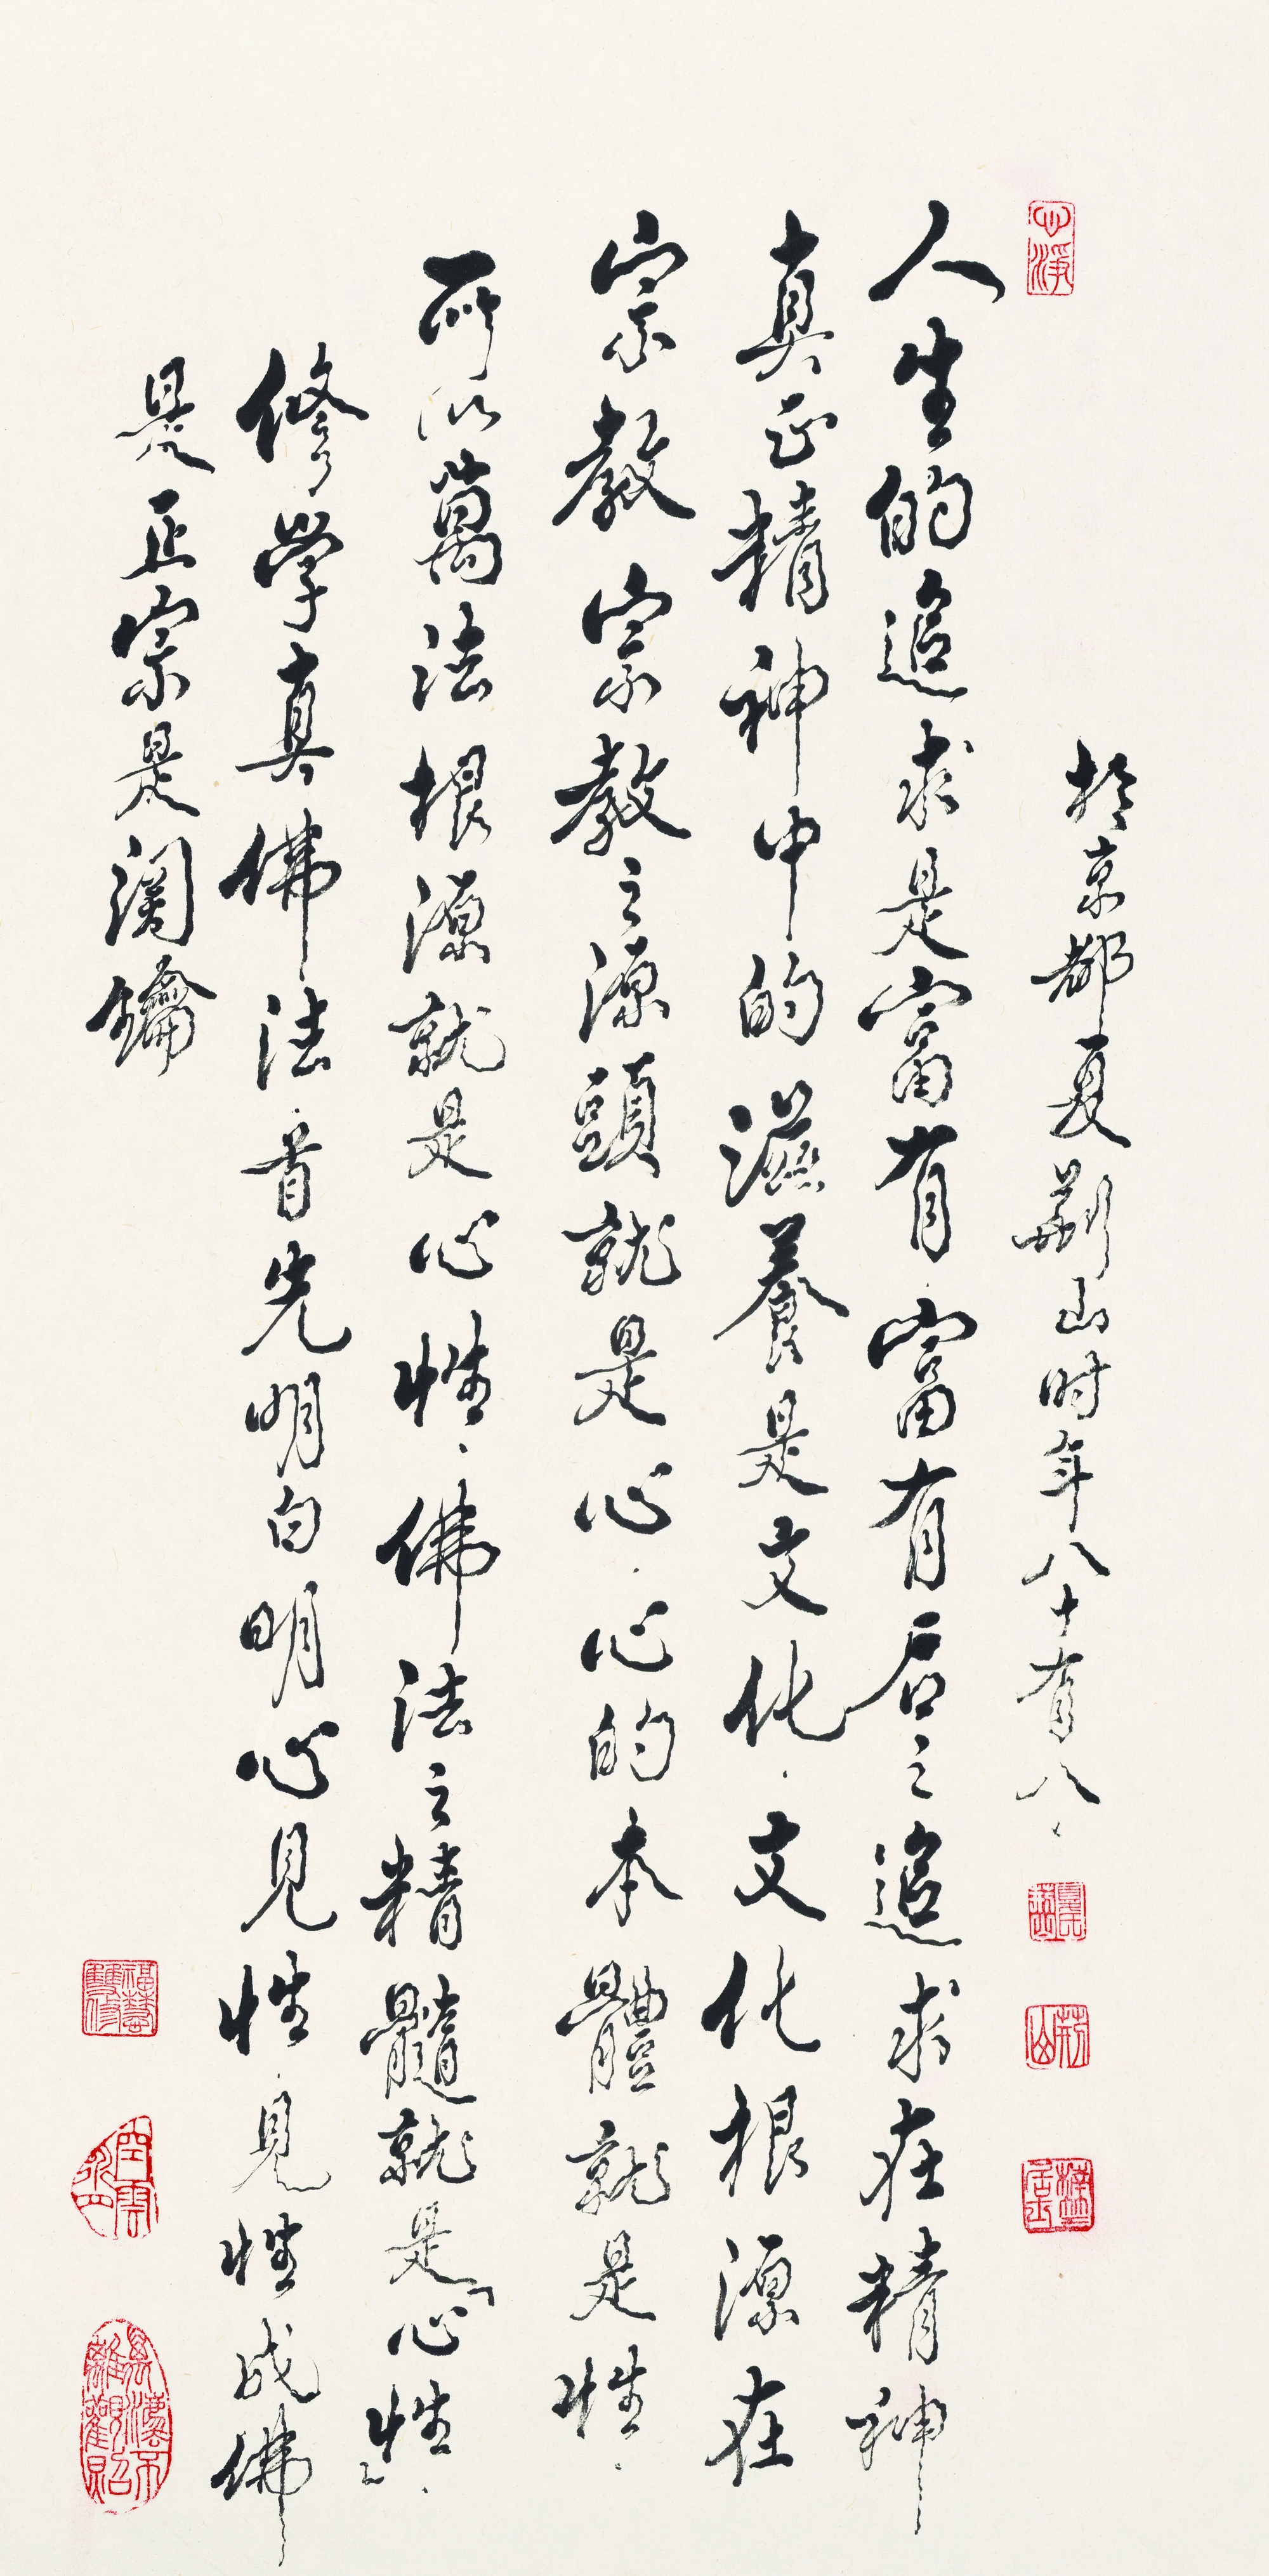 人生的追求是富有富有后之追求在精神
真正精神中的滋養是文化.文化根源在
宗教宗教之源頭就是心.心的本體就是性.
所以萬法根源就是心性.佛法之精髓就是「心性」.
修學真佛法.首先明白明心見性.見性成佛
是正宗是関鑰
於京都夏荊山时年八十有八.
心淨
荊山